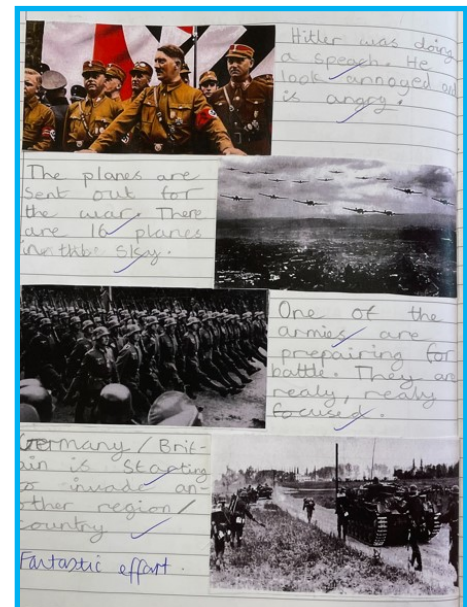 Hitler was doing
a speach. He
look annoyed and
is angry.
The planes are
sent out for
the war. There
are 16 planes
in the sky.
One of the
armies are
prepairing for
battle. They are
realy, realy
focused.
Germany / Brit-
ain is starting
to invade an-
other region/
country
Fantastic effort.